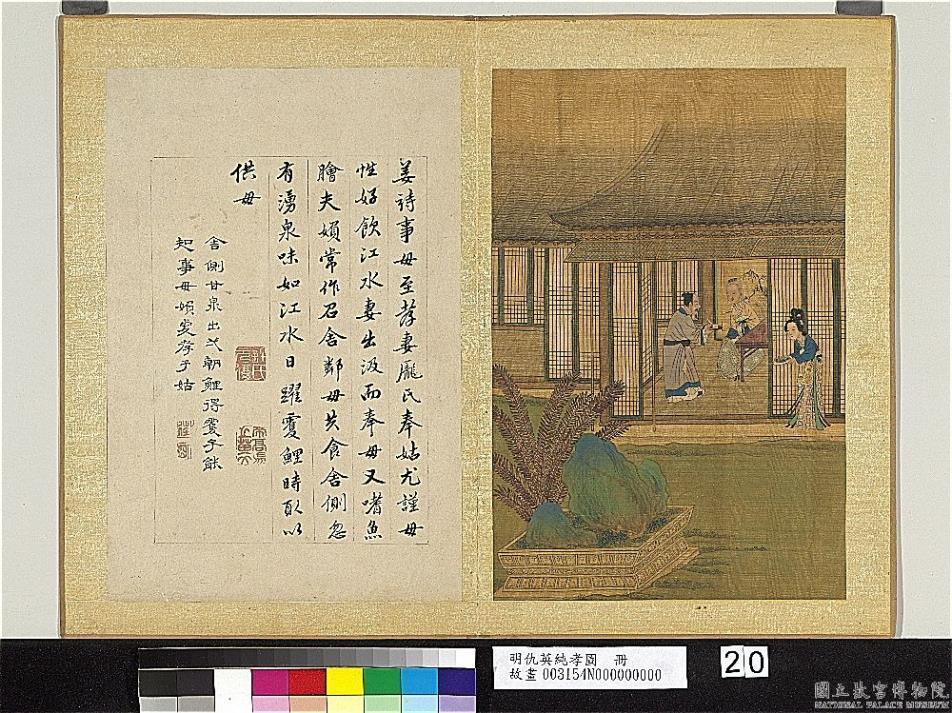 姜詩事母至孝妻龐氏奉姑尤謹母
性好飲江水妻出汲而奉母又嗜魚
膾夫婦常作召舍鄰母共食舍側忽
有湧泉味如江水日躍雙鯉時取以
供母
舍側甘泉出一朝雙鯉得子能
知事母婦更孝于姑
明仇英純孝圖 冊
故畫 003154N000000000
20
國立故宮博物院
NATIONAL PALACE MUSEUM